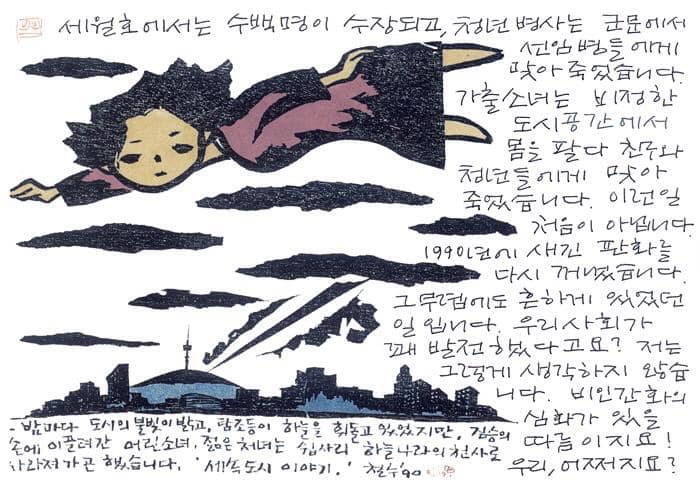 세월호에서는 수백명이 수장되고, 청년 병사는 군문에서
선임병들에게
맞아 죽었습니다.
가출소녀는 비정한
도시공간에서
몸을 팔다 친구와
청년들에게 맞아
죽었습니다. 이런일
처음이 아닙니다.
1990년에 새긴 판화를
다시 꺼냈습니다.
그무렵에도 흔하게 있었던
일입니다. 우리사회가
꽤 발전했다고요? 저는
그렇게 생각하지 않습
니다. 비인간화의
심화가 있을
따름이지요!
우리, 어쩌지요?
- 밤마다 도시의 불빛이 밝고, 탐조등이 하늘을 휘돌고 있었지만, 짐승의
손에 이끌려간 어린소녀, 젊은처녀는 쉽사리 하늘나라의 천사로
사라져가곤 했습니다. '세속도시 이야기.' 철수 '90